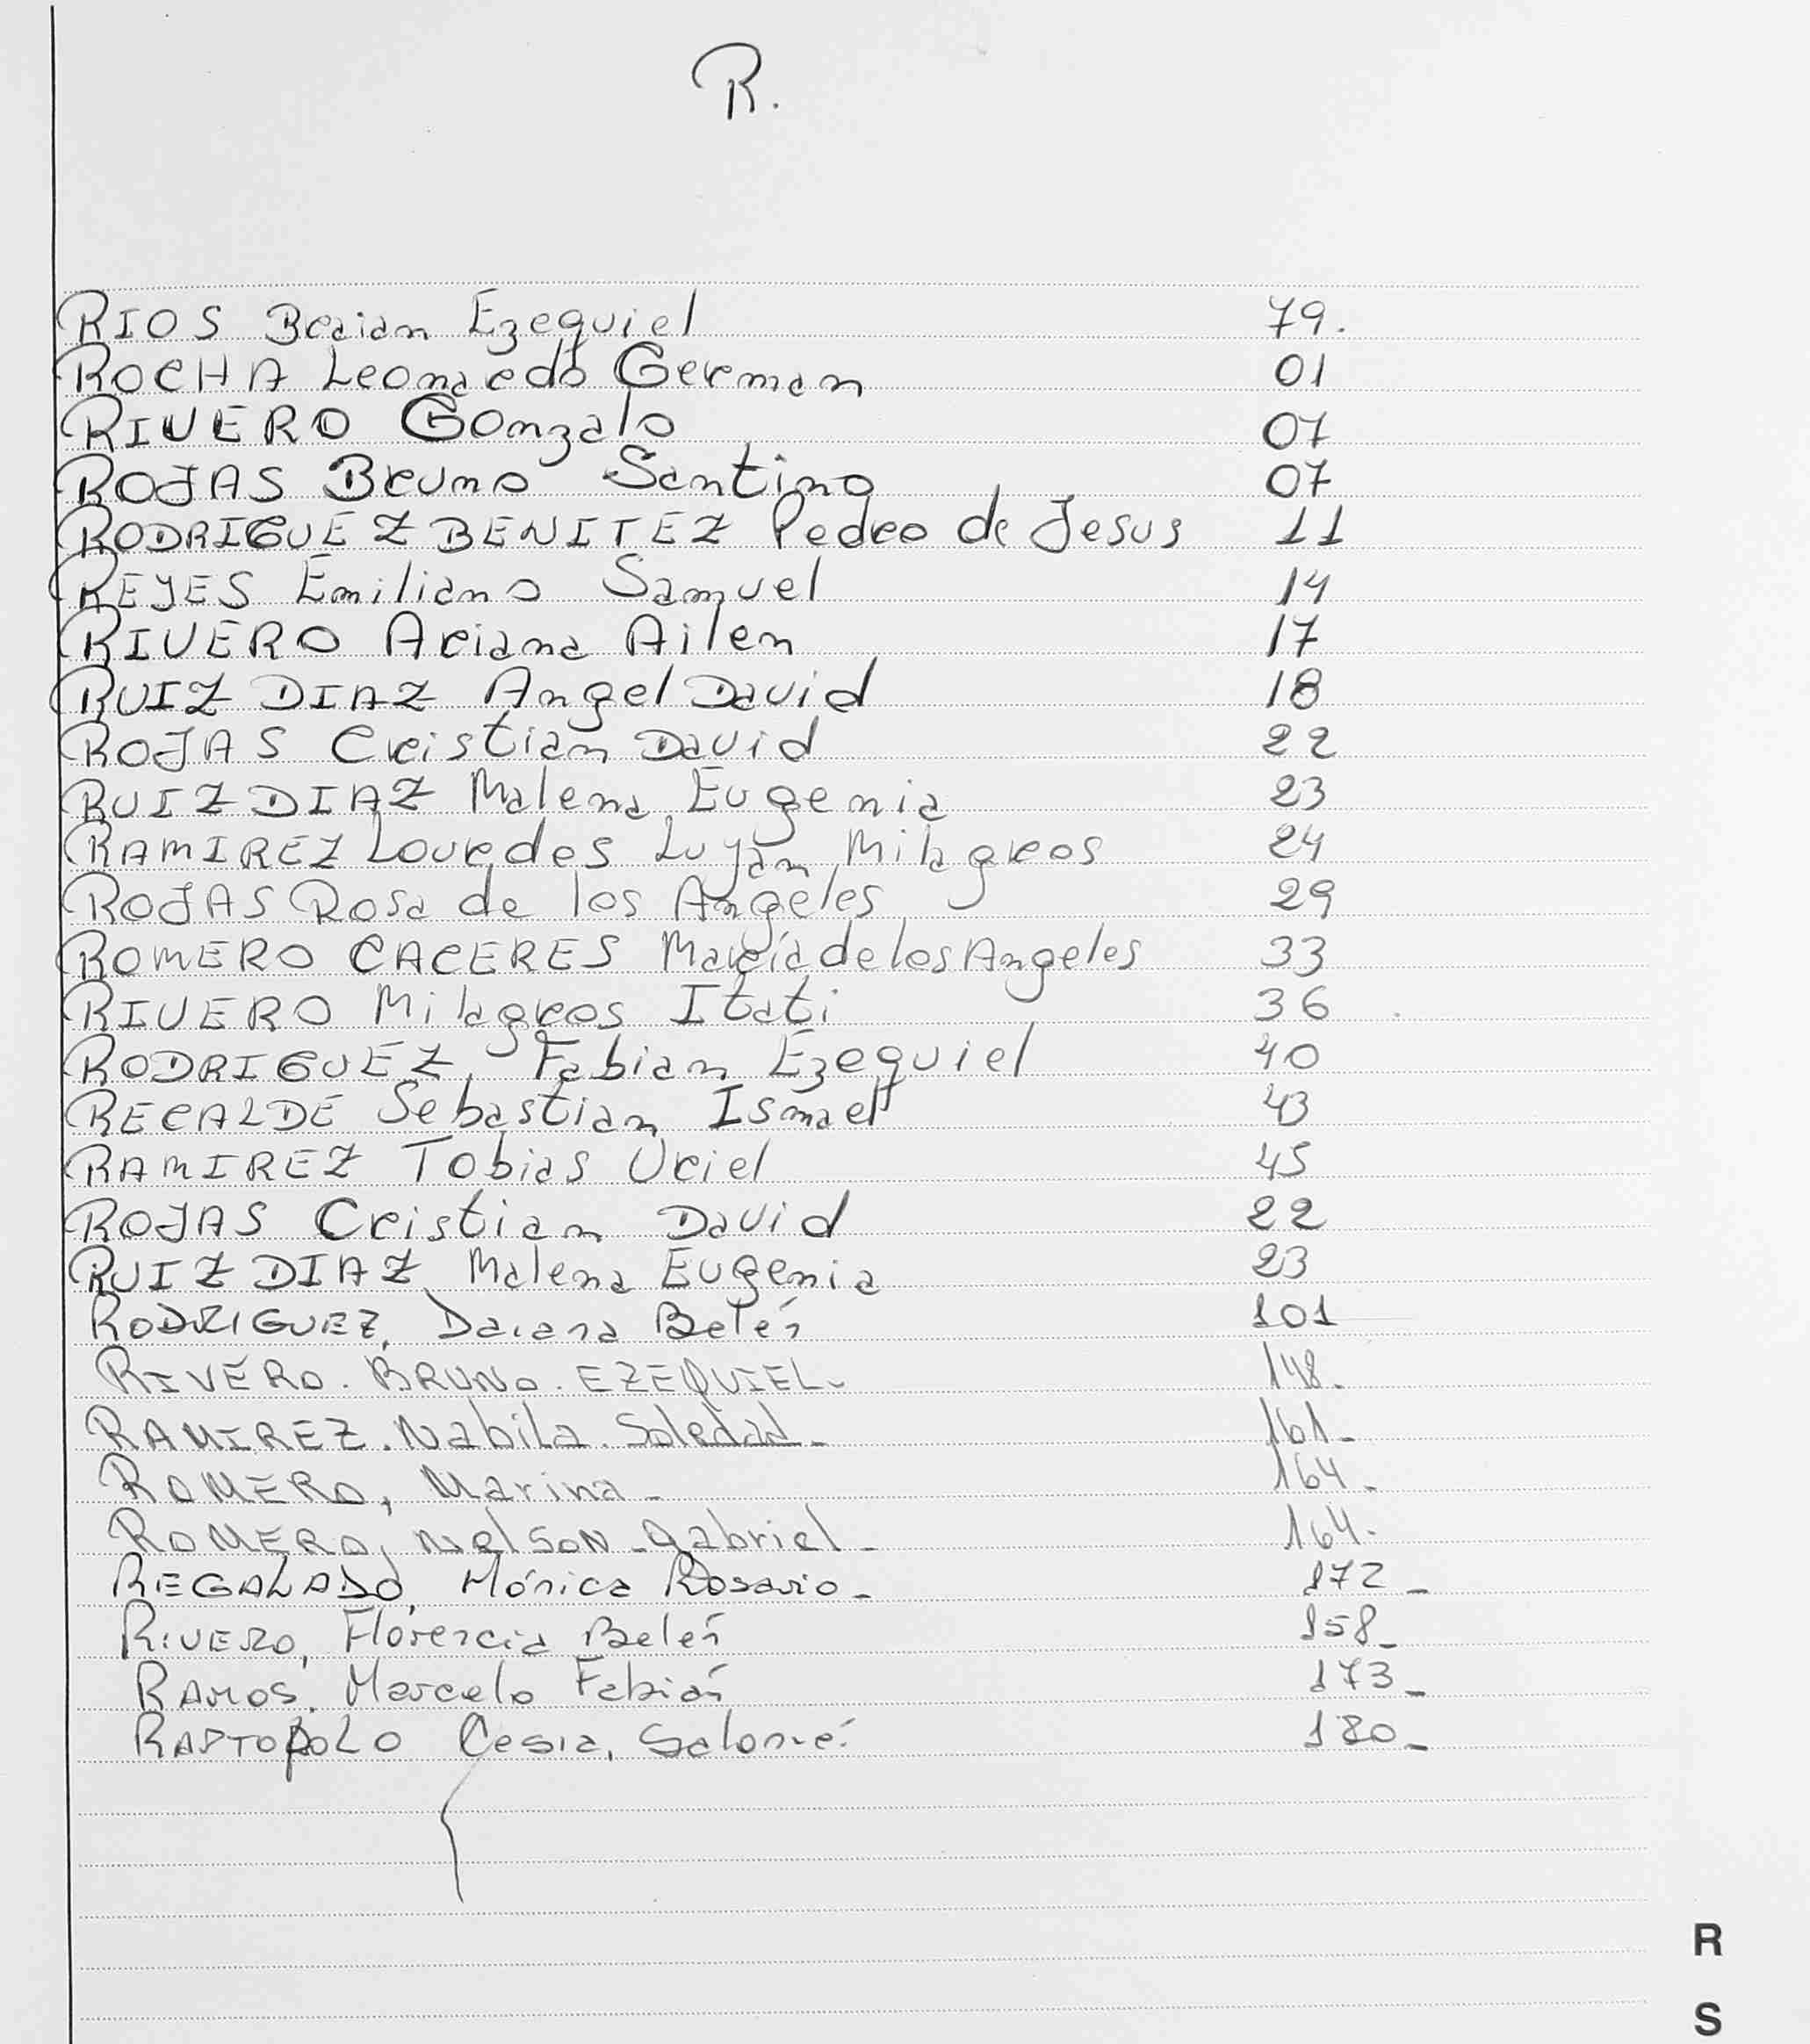 R.
RIOS Braian Ezequiel 79.
ROCHA Leonardo German 01
RIVERO Gonzalo 07
ROJAS Bruno Santino 07
RODRIGUEZ BENITEZ Pedro de Jesus 11
REYES Emiliano Samuel 14
RIVERO Ariana Ailen 17
RUIZ DIAZ Angel David 18
ROJAS Cristian David 22
RUIZ DIAZ Malena Eugenia 23
RAMIREZ Lourdes Luján Milagros 24
ROJAS Rosa de los Angeles 29
ROMERO CACERES María de los Angeles 33
RIVERO Milagros Itati 36
RODRIGUEZ, Fabian Ezequiel 40
RECALDE Sebastian Ismael 43
RAMIREZ Tobias Uriel 45
ROJAS Cristian David 22
RUIZ DIAZ Malena Eugenia 23
RODRIGUEZ, Daiana Belén 101
RIVERO. BRUNO. EZEQUIEL- 148.
RAMIREZ. Nabila. Soledad- 161-
ROMERO, Marina- 164-
ROMERO, NELSON-Gabriel- 164.
REGALADO, Mónica Rosario- 172-
RIVERO, Florencia Belén 158-
RAMOS, Marcelo Fabián 173-
Cesia, Salomé. 180-
R
S